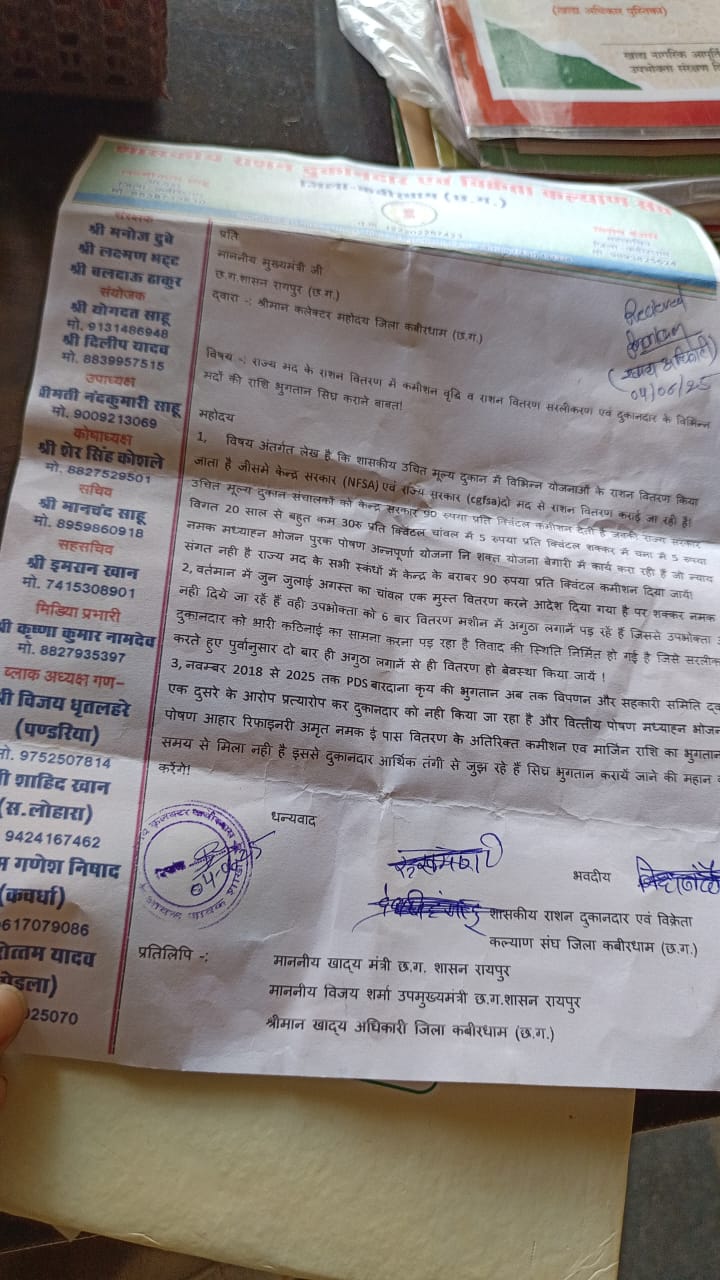 (खाद्य अधिकार पुस्तिका)
खाद्य नागरिक आपूर्ति
उपभोक्ता संरक्षण
शासकीय राशन दुकानदार एवं विक्रेता कल्याण संघ
जिला-कबीरधाम (छ.ग.)
संरक्षक
श्री मनोज दुबे
श्री लक्ष्मण भट्ट
श्री बलदाऊ ठाकुर
संयोजक
श्री योगदत साहू
मो. 9131486948
श्री दिलीप यादव
मो. 8839957515
उपाध्यक्ष
श्रीमती नंदकुमारी साहू
मो. 9009213069
कोषाध्यक्ष
श्री शेर सिंह कोशले
मो. 8827529501
सचिव
श्री मानचंद साहू
मो. 8959860918
सहसचिव
श्री इमरान खान
मो. 7415308901
मिडिया प्रभारी
श्री कृष्णा कुमार नामदेव
मो. 8827935397
ब्लाक अध्यक्ष गण-
श्री विजय धृतलहरे
(पण्डरिया)
मो. 9752507814
शाहिद खान
(स.लोहारा)
9424167462
गणेश निषाद
(कवर्धा)
617079086
यादव
25070
प्रति
माननीय मुख्यमंत्री जी
छ.ग.शासन रायपुर (छ.ग.)
द्वारा -: श्रीमान कलेक्टर महोदय जिला कबीरधाम (छ.ग.)
Received
(खाद्य अधिकारी)
04/06/25
विषय -: राज्य मद के राशन वितरण में कमीशन वृद्वि व राशन वितरण सरलीकरण एवं दुकानदार के विभिन्न
मदों की राशि भुगतान सिघ्र कराने बाबत!
महोदय
1, विषय अंतर्गत लेख है कि शासकीय उचित मूल्य दुकान में विभिन्न योजनाओं के राशन वितरण किया
जाता है जीसमे केन्द्र सरकार (NFSA) एवं राज्य सरकार (cgfsa)दो मद से राशन वितरण कराई जा रही है!
उचित मूल्य दुकान संचालकों को केन्द्र सरकार 90 रुपया प्रति क्विंटल कमीशन देती है जबकी राज्य सरकार
विगत 20 साल से बहुत कम 30रु प्रति क्विंटल चांवल में 5 रुपया प्रति क्विंटल शक्कर में चना में 5 रुपया
नमक मध्याहन भोजन पुरक पोषण अन्नपूर्णा योजना नि शक्त योजना बेगारी में कार्य करा रही हैं जो न्याय
संगत नही है राज्य मद के सभी स्कंधों में केन्द्र के बराबर 90 रुपया प्रति क्विंटल कमीशन दिया जायें
2, वर्तमान में जुन जुलाई अगस्त का चांवल एक मुस्त वितरण करने आदेश दिया गया है पर शक्कर नमक
नही दिये जा रहें हैं वही उपभोक्ता को 6 बार वितरण मशीन में अगुठा लगानें पड़ रहे हैं जिससे उपभोक्ता
दुकानदार को भारी कठिनाई का सामना करना पड़ रहा है विवाद की स्थिति निर्मित हो गई है जिसे सरलीक
करते हुए पुर्वानुसार दो बार ही अगुठा लगानें से ही वितरण हो बेवस्था किया जायें !
3, नवम्बर 2018 से 2025 तक PDS बारदाना कृय की भुगतान अब तक विपणन और सहकारी समिति
एक दुसरे के आरोप प्रत्यारोप कर दुकानदार को नही किया जा रहा है और वित्तीय पोषण मध्याहन भोजन
पोषण आहार रिफाइनरी अमृत नमक ई पास वितरण के अतिरिक्त कमीशन एवं मार्जिन राशि का भुगतान
समय से मिला नही है इससे दुकानदार आर्थिक तंगी से जुझ रहे हैं सिघ्र भुगतान करायें जाने की महान
करेंगे!
धन्यवाद
04-06-25
भवदीय
शासकीय राशन दुकानदार एवं विक्रेता
कल्याण संघ जिला कबीरधाम (छ.ग.)
प्रतिलिपि -:
माननीय खाद्य मंत्री छ.ग. शासन रायपुर
माननीय विजय शर्मा उपमुख्यमंत्री छ.ग.शासन रायपुर
श्रीमान खाद्य अधिकारी जिला कबीरधाम (छ.ग.)